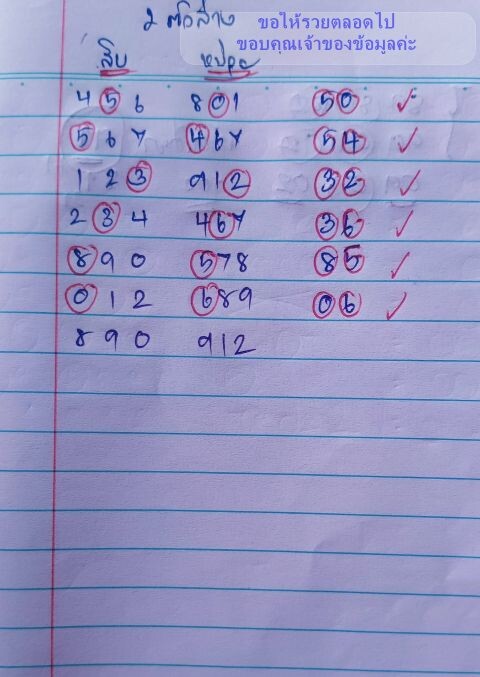 2 ตัวล่าง
ขอให้รวยตลอดไป
ขอบคุณเจ้าของข้อมูลค่ะ
สิบ หน่วย
4 5 6 8 0 1 50 ✓
5 6 7 4 6 7 54 ✓
1 2 3 9 1 2 32 ✓
2 3 4 4 6 7 36 ✓
8 9 0 5 7 8 85 ✓
0 1 2 6 8 9 06 ✓
8 9 0 9 1 2